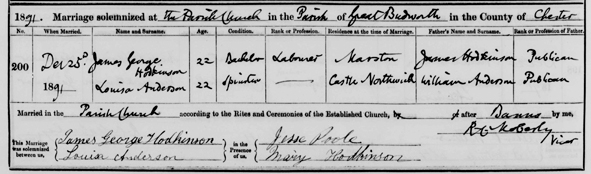 1891. Marriage solemnized at the Parish Church in the Parish of Great Budworth in the County of Chester
No. When Married. Name and Surname. Age. Condition. Rank or Profession. Residence at the time of Marriage. Father's Name and Surname. Rank or Profession of Father.
200 Dec 25th James George Hodkinson 22 Bachelor Labourer Marston James Hodkinson Publican
1891 Louisa Anderson 22 Spinster — Castle Northwich William Anderson Publican
Married in the Parish Church according to the Rites and Ceremonies of the Established Church, by or after Banns by me,
This Marriage was solemnized between us, James George Hodkinson in the Presence of us, Jesse Poole Vicar
Louisa Anderson Mary Hodkinson